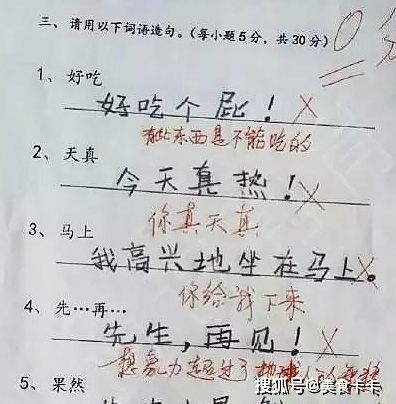 三、请用以下词语造句。(每小题5分,共30分)
0分
1、好吃
好吃个屁!×
有些东西是不能吃的
2、天真
今天真热!×
你真天真
3、马上
我高兴地坐在马上。×
你给我下来
4、先…再…
先生,再见!×
想象力超过了地球人的
5、果然
搜狐号@美食卡卡